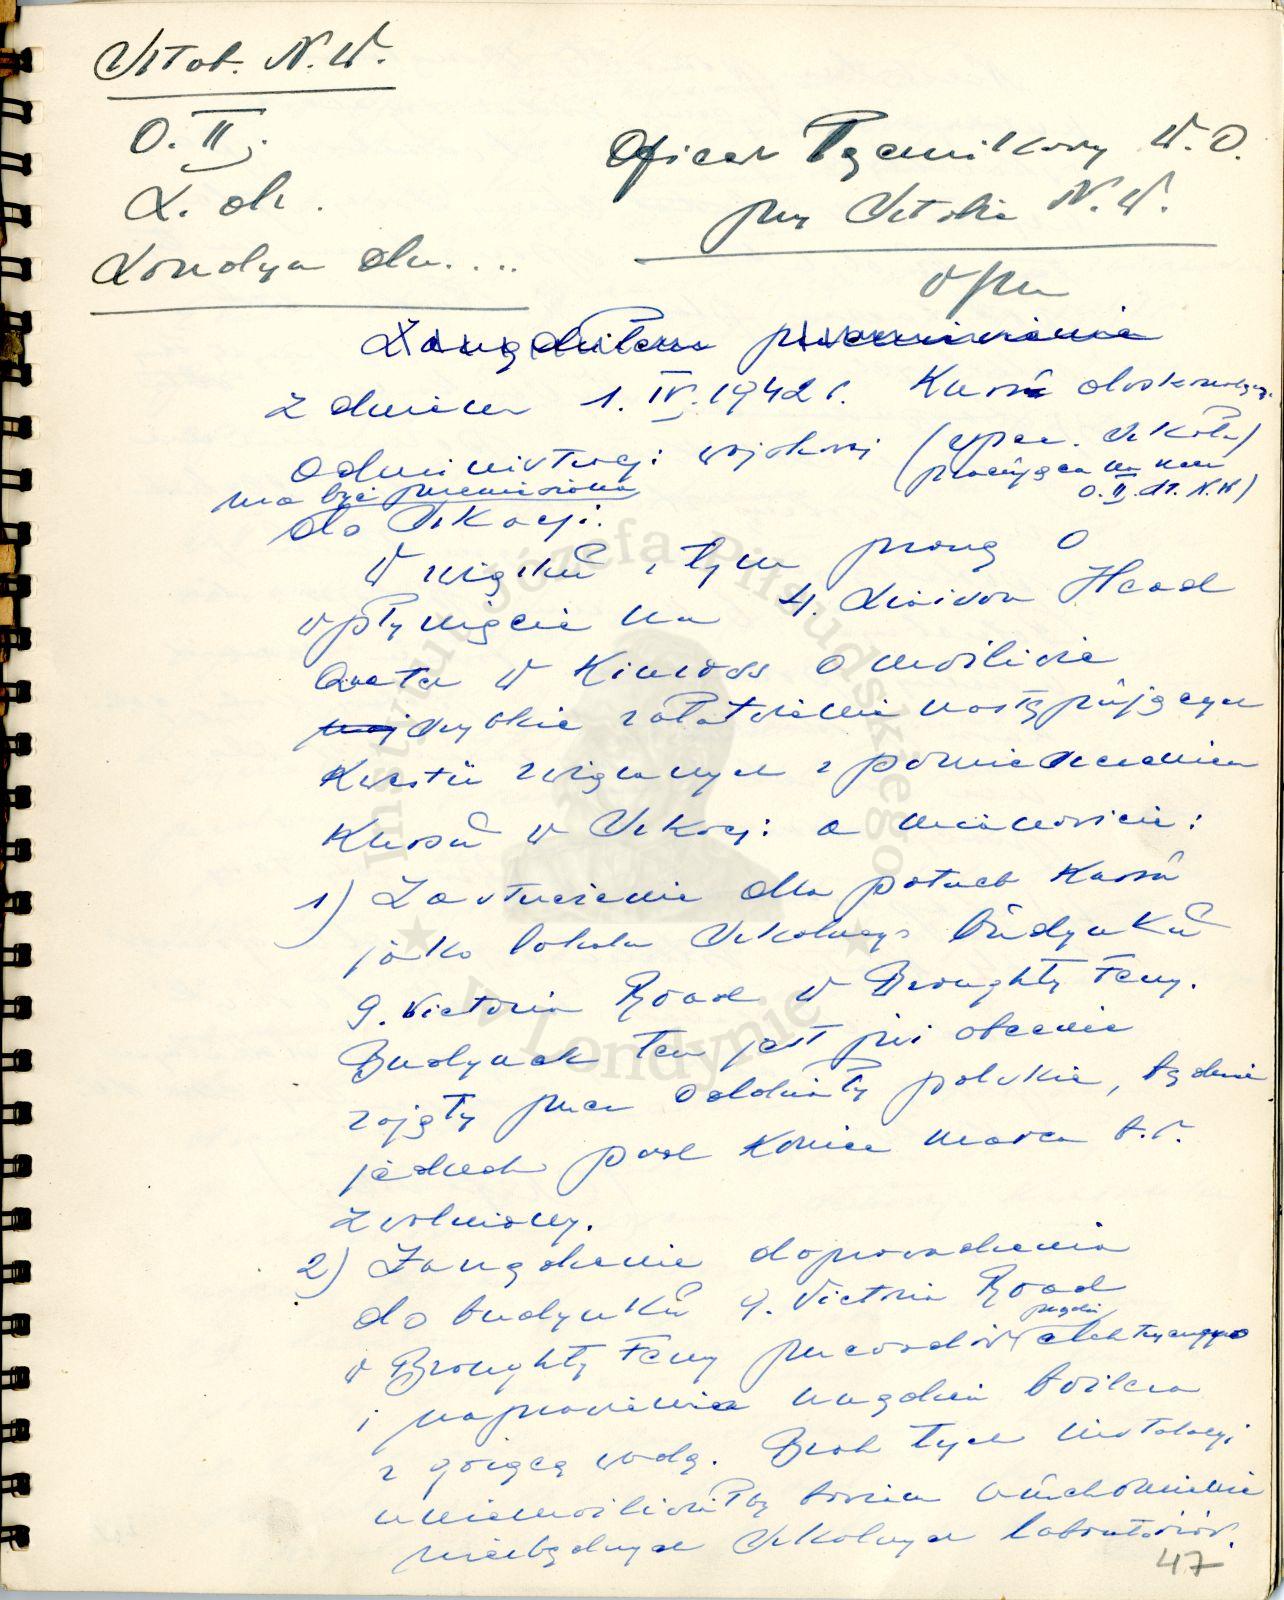 Sztab. N.W.
O. II.
L. dz.
Londyn dn....
Oficer Łącznikowy W.O.
przy Sztabie N.W.
w/m
Zarządziłem przeniesienie
Z dniem 1.IV.1942 r. Kurs doskonalący
administracji wojskowej (spec. Szkoła)
pracująca na rzecz
O.II.Szt. N.W)
ma być przeniesiona
do Szkocji.
W związku z tym proszę o
wpłynięcie na 4. Liaison Head
Qrters w Kinross o możliwie
szybkie załatwienie następujących
kwestii związanych z pomieszczeniem
Kursu w Szkocji a mianowicie:
1) Zastrzeżenie dla potrzeb Kursu
jako lokalu szkolnego budynku
9. Victoria Road w Broughty Ferry.
Budynek ten jest już obecnie
zajęty przez oddziały polskie, będzie
jednak pod koniec marca b.r.
zwolniony.
2) Zarządzenie doprowadzenia
do budynku 9. Victoria Road
w Broughty Ferry przewodów prądu elektrycznego
i naprawienia urządzeń boilera
z gorącą wodą. Brak tych instalacji
uniemożliwiłby bowiem uruchomienie
niezbędnych szkolnych laboratoriów.
47
Instytut Józefa Piłsudskiego
w Londynie